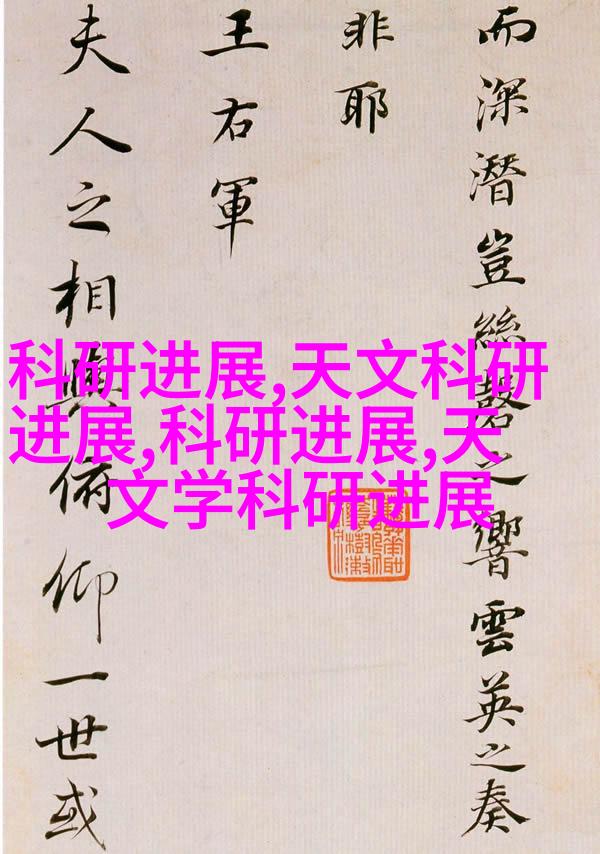 而深潜豈絲磬之響雲英之奏
非耶
王右軍
夫人之相與俯仰一世或
科研进展,天文科研
进展,科研进展,天
文学科研进展